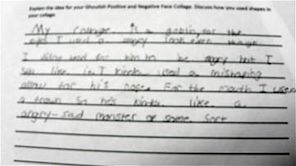 Explain the idea for your Ghoulish Positive and Negative Face Collage. Discuss how you used shapes in
your collage.
My collage is a goblin, for the
eyes I used a angry look even though
I didn't want for him to be angry but I
like it. I kinda used a
for his nose. For the mouth I used
a frown so he's kinda like a
angry-sad monster of some sort